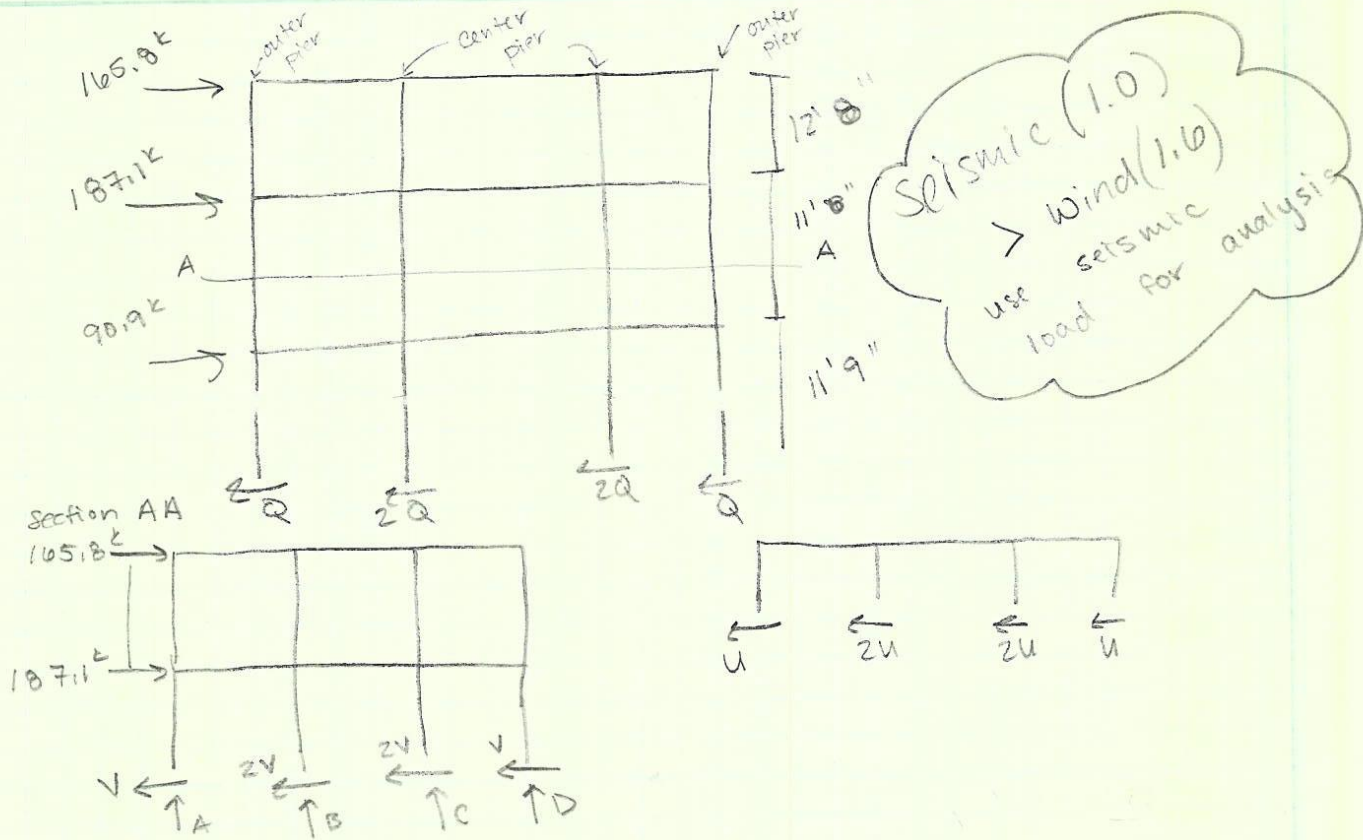 outer
pier
center
pier
outer
pier
165.8k
187.1k
A
A
90.9k
12'8"
11'8"
11'9"
Seismic (1.0)
> Wind (1.6)
use seismic
load for analysis
Q
2Q
2Q
Q
section AA
165.8k
187.1k
V
2V
2V
V
↑A
↑B
↑C
↑D
U
2U
2U
U